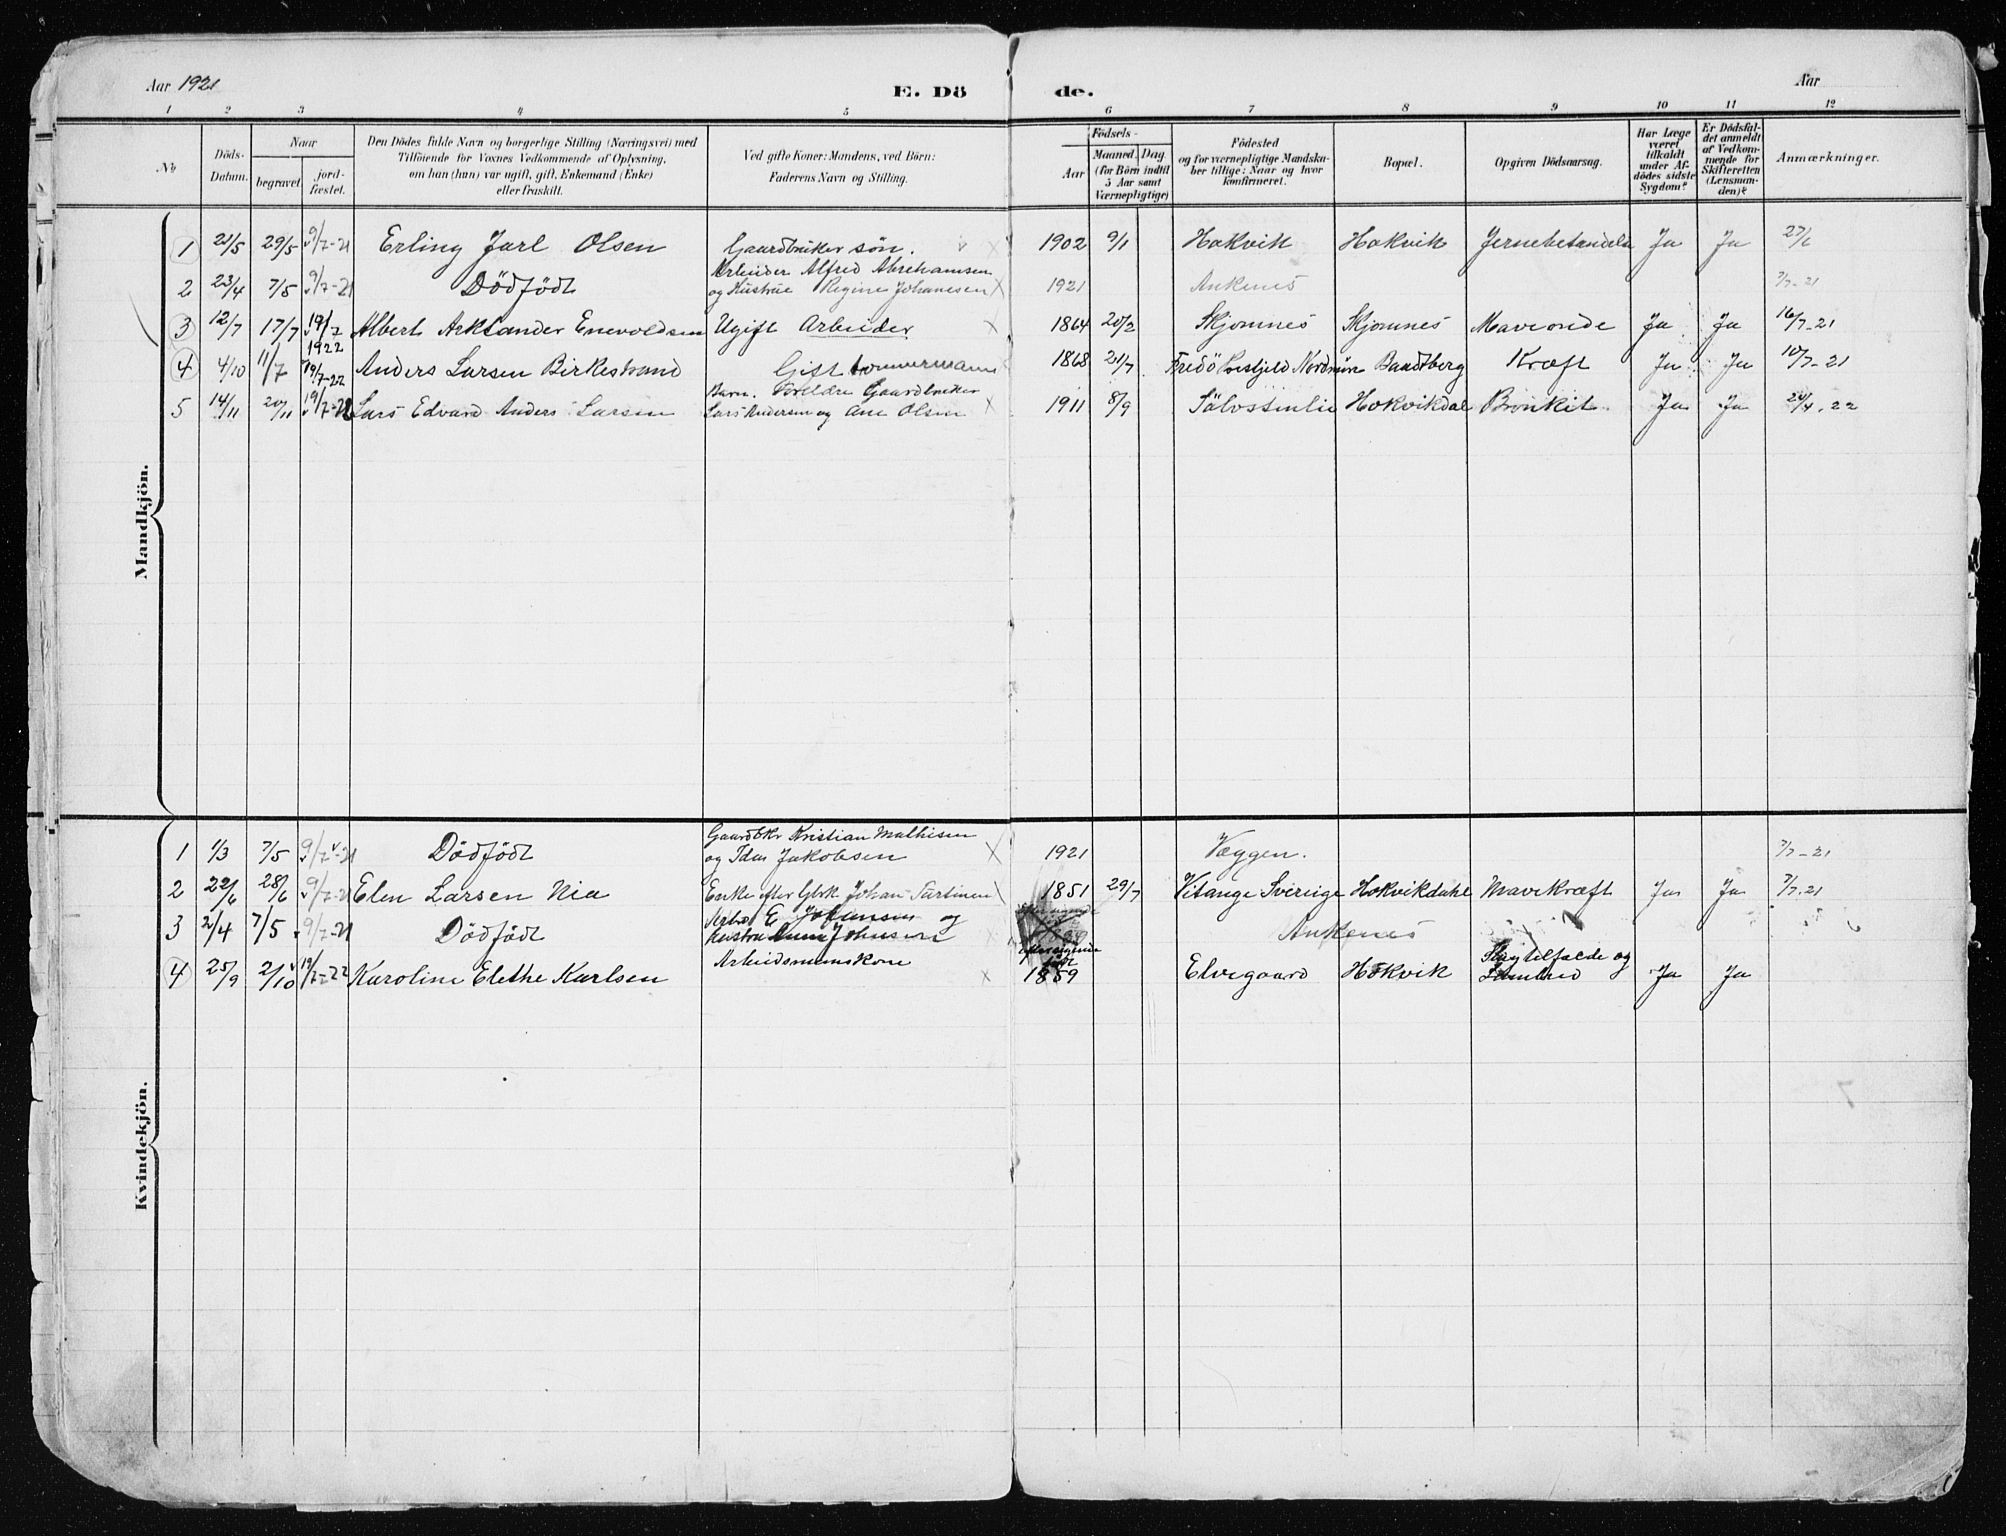 Aar 1921 E. Dö de. Aar
1 2 3 4 5 6 7 8 9 10 11 12
No
Döds-Datum.
Naar
begravet.
jord-fæstet.
Den Dödes fulde Navn og borgerlige Stilling (Næringsvei) med
Tilföiende for Voxnes Vedkommende af Oplysning,
om han (hun) var ugift, gift, Enkemand (Enke)
eller fraskilt.
Ved gifte Koner: Mandens, ved Börn:
Faderens Navn og Stilling.
Födsels-
Aar
Maaned. Dag.
(for Börn indtil
5 Aar samt
Værnepligtige)
Födested
og for værnepligtige Mandska-
ber tillige: Naar og hvor
konfirmeret.
Bopæl.
Opgiven Dödsaarsag.
Har Læge
været
tilkaldt
under Af-
dödes sidste
Sygdom?
Er Dödsfal-
det anmeldt
af Vedkom-
mende for
Skifteretten
(Lensman-
den)?
Anmærkninger.
Mandkjön.
1 21/5 29/5 9/7-21 Erling Jarl Olsen Gaardbruker søn. 1902 9/1 Hokvik Hokvik Ja Ja 27/6
Arbeider Alfred Abrahamsen
2 23/4 7/5 9/7-21 Dödfödt og Hustrue Regine Johanesen 1921 Ankenes 7/7-21
3 12/7 17/7 19/7 Albert Enevoldsen Ugift Arbeider 1864 20/2 Skjomnes Skjomnes Ja Ja 16/7-21
1922
4 4/10 11/7 19/7-22 Anders Larsen Birkestrand Gift tömmermann 1868 21/7 Nordmöre Kræft Ja Ja 10/7-21
Barn. Foreldre Gaardbruker
5 14/11 20/11 19/7-22 Lars Edvard Anders Larsen Lars Andersen og Ane Olsen 1911 8/9 Sölvstenlie Hokvikdal Bronkit Ja Ja 24/4-22
Kvindekjön.
Gaardbkr Kristian Mathisen
1 1/3 7/5 9/7-21 Dödfödt og Ida Jakobsen 1921 Væggen. 7/7-21
2 22/6 28/6 9/7-21 Elen Larsen Nia Enke efter Gbk Johan 1851 29/7 Vitange Sverige Hokvikdahl Mavekræft Ja Ja 7/7-21
E Johansen og
3 21/4 7/5 9/7-21 Dödfödt Hustru Johnsen Ankenes
Arbeidsmanskone
Slagtilfælde og
4 25/9 2/10 19/7-22 Karoline Elethe Karlsen 1859 Elvegaard Hokvik Ja Ja